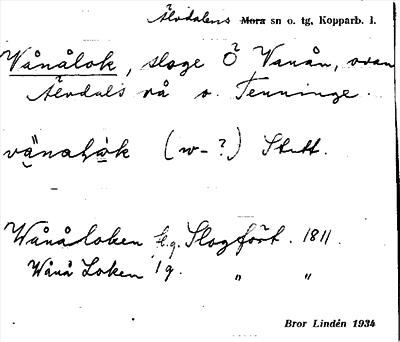 Älvdalens Mora sn o. tg, Kopparb. l.
Vånålok, sloge Ö Vanån, ovan
Älvdals rå o. Tenninge.
vänalok (w-?) Stutt.
Wånåloken fl.g. Slogfört. 1811.
Wånå Loken 1 g. " "
Bror Lindén 1934